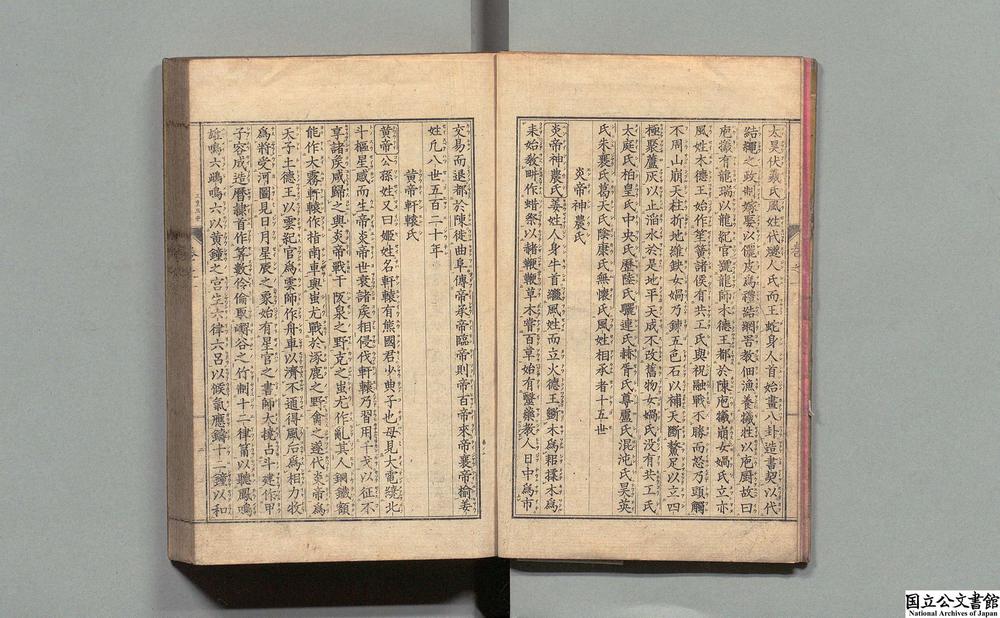 太昊伏羲氏風姓代燧人氏而王蛇身人首始畫八卦造書契以代
結繩之政制嫁娶以儷皮爲禮結網罟教佃漁養犧牲以庖厨故曰
庖犧有龍瑞以龍紀官號龍師木德王都於陳庖犧崩女媧氏立亦
風姓木德王始作笙簧諸侯有共工氏與祝融戰不勝而怒乃頭觸
不周山崩天柱折地維缺女媧乃錬五色石以補天斷鼇足以立四
極聚蘆灰以止滔水於是地平天成不改舊物女媧氏没有共工氏
太庭氏柏皇氏中央氏歷陸氏驪連氏赫胥氏尊盧氏混沌氏昊英
氏朱襄氏葛天氏陰康氏無懷氏風姓相承者十五世
炎帝神農氏
炎帝神農氏姜姓人身牛首繼風姓而立火德王斲木爲耜揉木爲
耒始教畊作蜡祭以赭鞭鞭草木嘗百草始有醫藥教人日中爲市
交易而退都於陳徙曲阜傳帝承帝臨帝則帝百帝來帝襄帝榆姜
姓凡八世五百二十年
黄帝軒轅氏
黄帝公孫姓又曰姬姓名軒轅有熊國君少典子也母見大電繞北
斗樞星感而生帝炎帝世衰諸侯相侵伐軒轅乃習用干戈以征不
享諸侯咸歸之與炎帝戰于阪泉之野克之蚩尤作亂其人銅鐵額
能作大霧軒轅作指南車與蚩尤戰於涿鹿之野禽之遂代炎帝爲
天子土德王以雲紀官爲雲師作舟車以濟不通得風后爲相力牧
爲將受河圖見日月星辰之象始有星官之書師大撓占斗建作甲
子容成造曆隸首作算數伶倫取嶰谷之竹制十二律筩以聽鳳鳴
雄鳴六雌鳴六以黄鐘之宮生六律六呂以候氣應鑄十二鐘以和
国立公文書館
National Archives of Japan